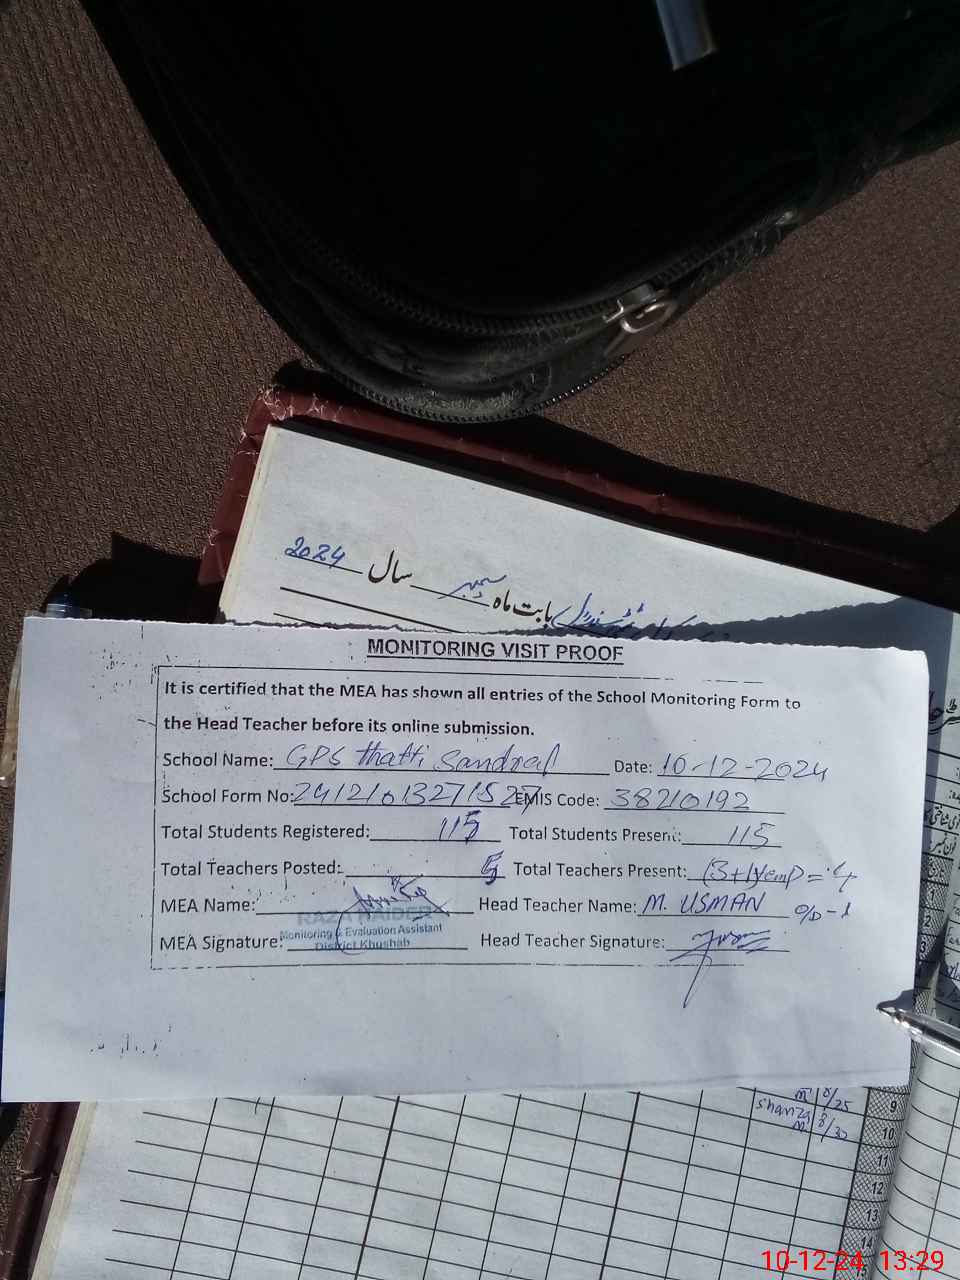 2024 سال دسمبر بابت ماہ
MONITORING VISIT PROOF
It is certified that the MEA has shown all entries of the School Monitoring Form to
the Head Teacher before its online submission.
School Name: GPS Thatti Sandral Date: 10-12-2024
School Form No: EMIS Code: 38210192
Total Students Registered: 115 Total Students Present: 115
Total Teachers Posted: 5 Total Teachers Present: (3+1)/emp = 4
MEA Name: Head Teacher Name: M. USMAN O/D-1
RAZA HAIDER
MEA Signature: Head Teacher Signature:
Monitoring & Evaluation Assistant
District Khushab
m 8/25 9
Shanza 8/30 10
11
12
13
14
15
10-12-24 13:29